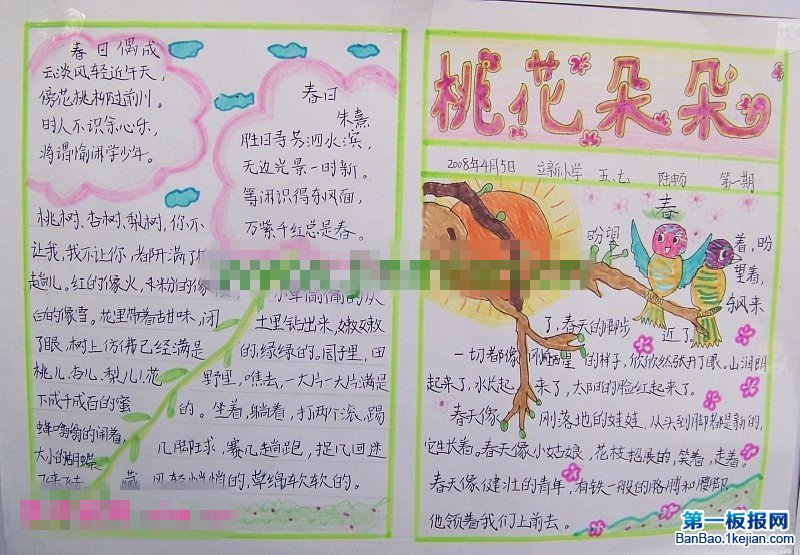 春日偶成
云淡风轻近午天，
傍花随柳过前川。
时人不识余心乐，
将谓偷闲学少年。
春日
朱熹
胜日寻芳泗水滨，
无边光景一时新。
等闲识得东风面，
万紫千红总是春。
桃树、杏树、梨树，你不
让我，我不让你，都开满了
趟儿。红的像火，粉的像
白的像雪。花里带着甜味，闭
了眼，树上仿佛已经满是
桃儿、杏儿、梨儿！花
下成千成百的蜜
蜂嗡嗡的闹着，
大小的蝴蝶
飞来飞去
小草偷偷的从
土里钻出来，嫩嫩
的，绿绿的。园子里，田
野里，瞧去，一大片一大片满是
的。坐着，躺着，打两个滚，踢
几脚球，赛几趟跑，捉几回迷
藏 风轻悄悄的，草绵软软的。
桃花朵朵
2008年4月5日 立新小学 五、七 陆畅 第一期
春
盼望着，盼
望着，
东风来
了，春天的脚步近了。
一切都像 的样子，欣欣然张开了眼。山润朗
起来了，水长起来了，太阳的脸红起来了。
春天像刚落地的娃娃，从头到脚都是新的，
它生长着。春天像小姑娘，花枝招展的，笑着，走着。
春天像健壮的青年，有铁一般的胳膊和腰脚
他领着我们上前去。
第一板报网
BanBao.1kejian.com